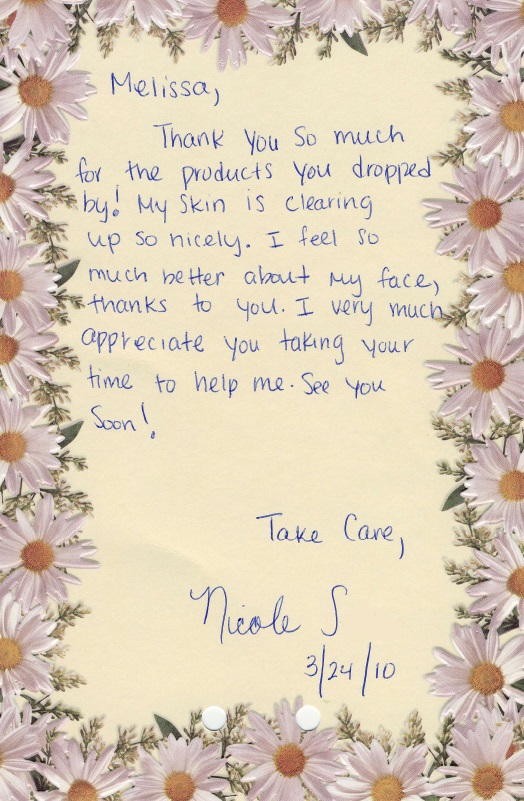 Melissa,
Thank you so much
for the products you dropped
by! My skin is clearing
up so nicely. I feel so
much better about my face,
thanks to you. I very much
appreciate you taking your
time to help me. See you
soon!
Take Care,
Nicole S
3/24/10